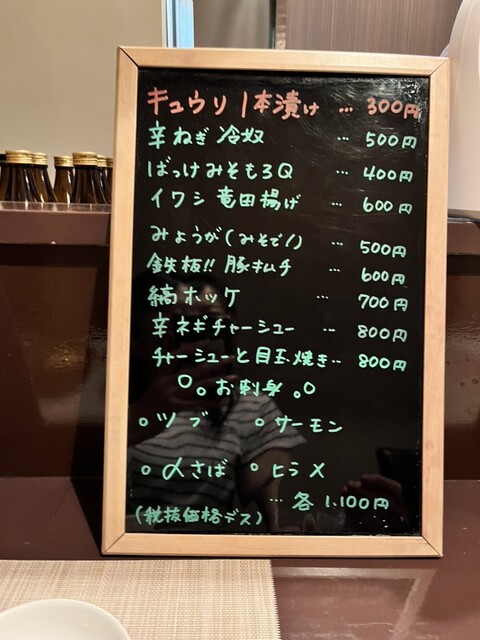 キュウリ1本漬け … 300円
辛ねぎ冷奴 … 500円
ばっけみそもろQ … 400円
イワシ竜田揚げ … 600円
みょうが(みそで!) … 500円
鉄板!!豚キムチ … 600円
縞ホッケ … 700円
辛ネギチャーシュー … 800円
チャーシューと目玉焼き… 800円
○。お刺身。○
○ツブ ○サーモン
○〆さば ○ヒラメ
… 各1,100円
(税抜価格デス)